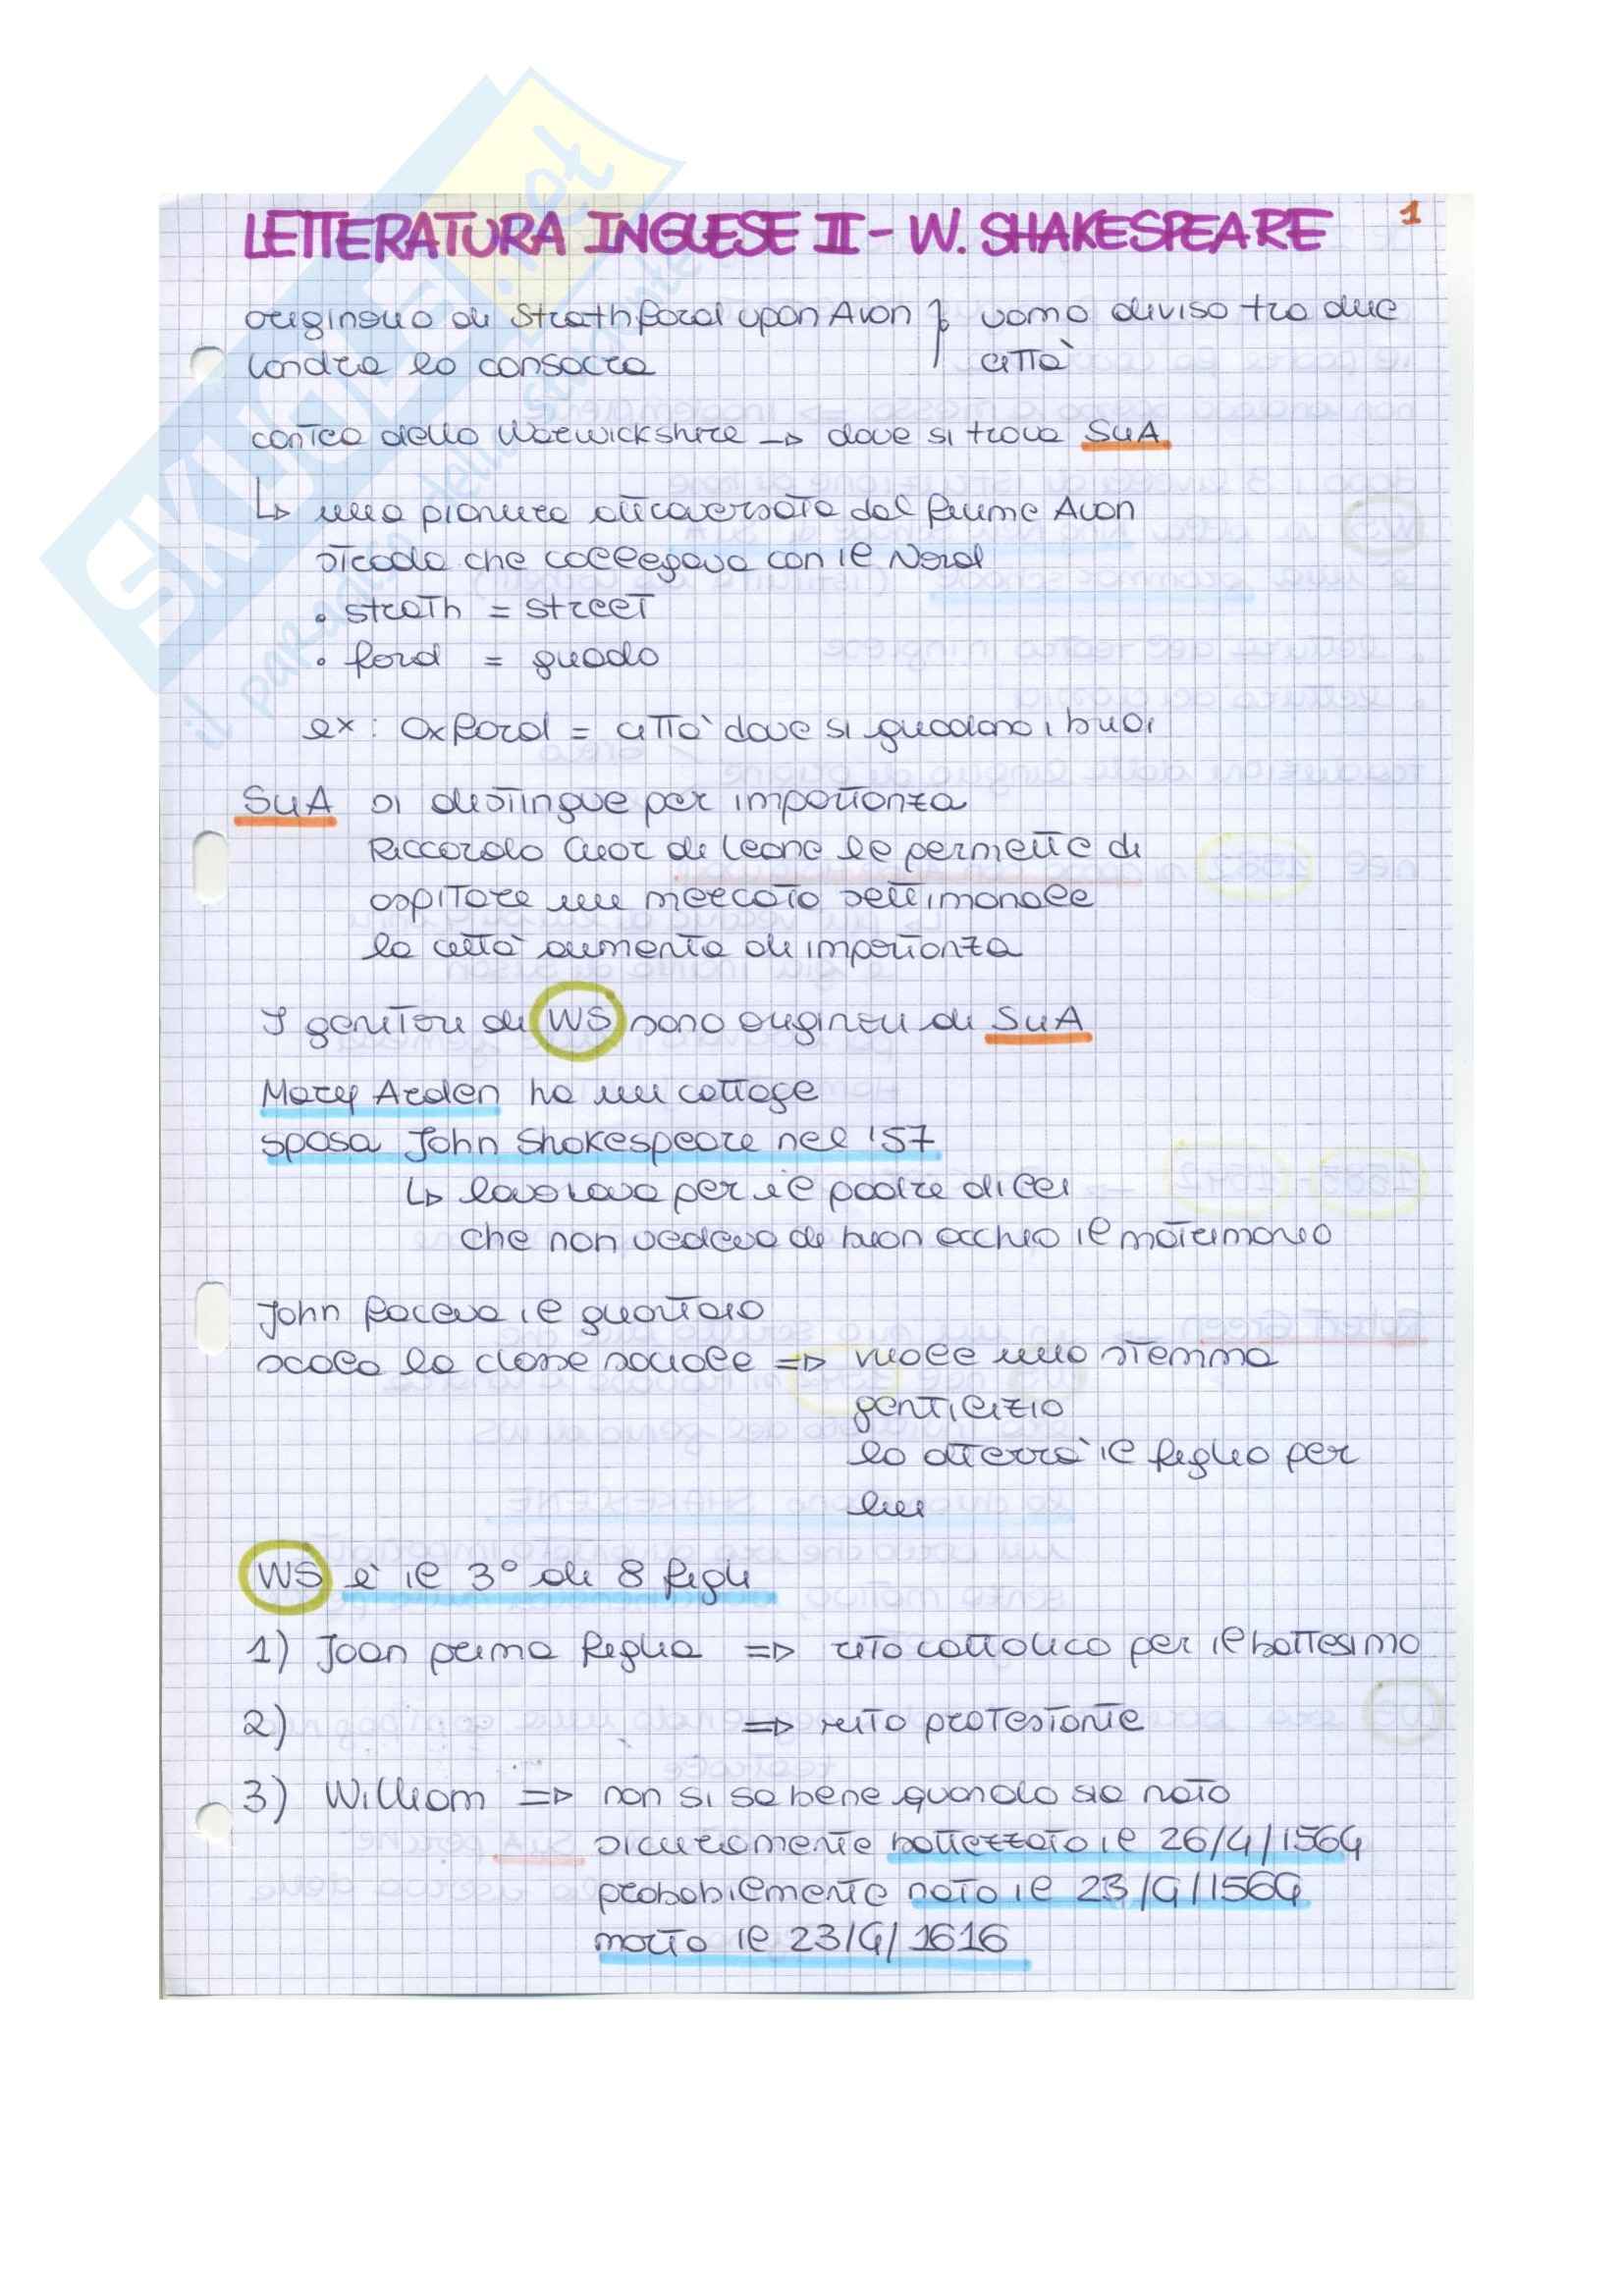 LETTERATURA INGLESE II - W. SHAKESPEARE 1
originario di Strathford upon Avon } uomo diviso tra due
Londra lo consacra città
contea dello Warwickshire → dove si trova SuA
↳ una pianura attraversata dal fiume Avon
strada che collegava con il Nord
• strath = street
• ford = guado
ex: Oxford = città dove si guadano i buoi
SuA si distingue per importanza
Riccardo Cuor di Leone le permette di
ospitare un mercato settimanale
la città aumenta di importanza
I genitori di WS sono originari di SuA
Mary Arden ha un cottage
sposa John Shakespeare nel '57
↳ lavorava per il padre di lei
che non vedeva di buon occhio il matrimonio
John faceva il guantaio
scala la classe sociale ⇒ vuole uno stemma
gentilizio
lo otterrà il figlio per
lui
WS è il 3° di 8 figli
1) Joan prima figlia ⇒ rito cattolico per il battesimo
2) ⇒ rito protestante
3) William ⇒ non si sa bene quando sia nato
sicuramente battezzato il 26/4/1564
probabilmente nato il 23/4/1564
morto il 23/4/1616
SKUOLA.net
il paradiso dello studente